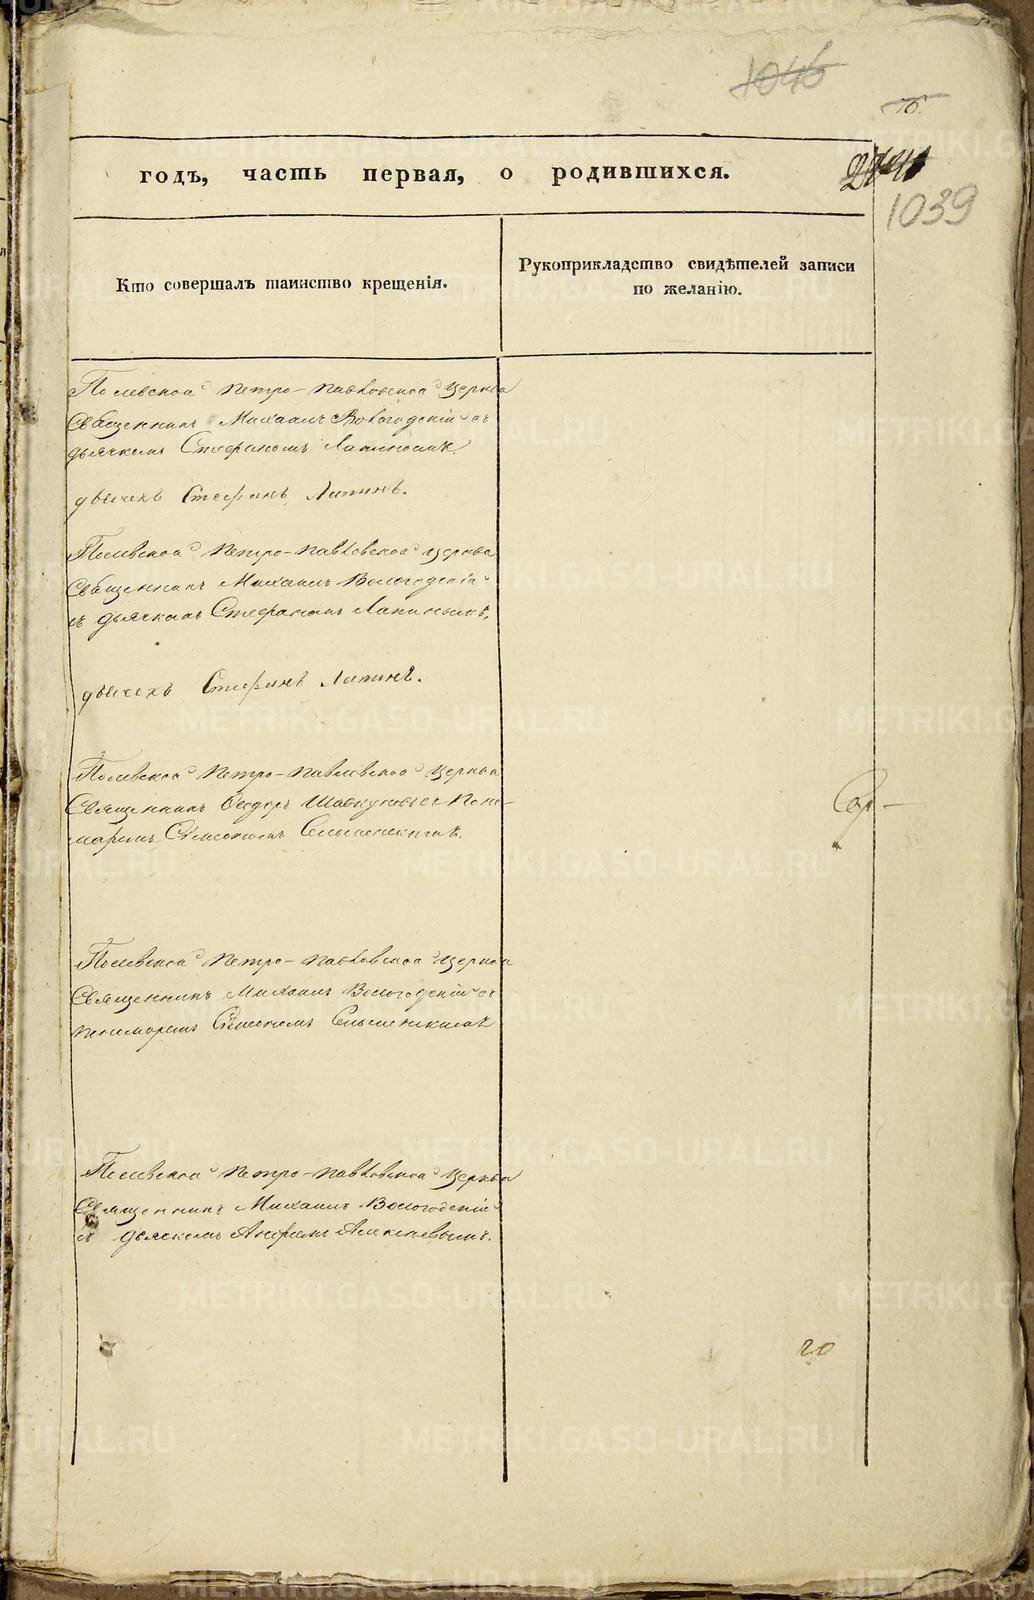 1046
16.
годъ, часть первая, о родившихся.
1039
Кто совершалъ таинство крещенія.
Рукоприкладство свидѣтелей записи
по желанію.
Полевской Петро-Павловской церкви
Священникъ Михаилъ Вологодскій съ
дьячкомъ Стефаномъ Лапинымъ.
дьячекъ Стефанъ Лапинъ.
Полевской Петро-Павловской церкви
Священникъ Михаилъ Вологодскій
съ дьячкомъ Стефаномъ Лапинымъ.
дьячекъ Стефанъ Лапинъ.
Полевской Петро-Павловской церкви
Священникъ Феодоръ Шавкуновъ съ Поно-
маремъ Симеономъ
Полевской Петро-Павловской церкви
Священникъ Михаилъ Вологодскій съ
пономаремъ Симеономъ
Полевской Петро-Павловской церкви
Священникъ Михаилъ Вологодскій
съ дьячкомъ Алексѣевымъ.
20
METRIKI.GASO-URAL.RU